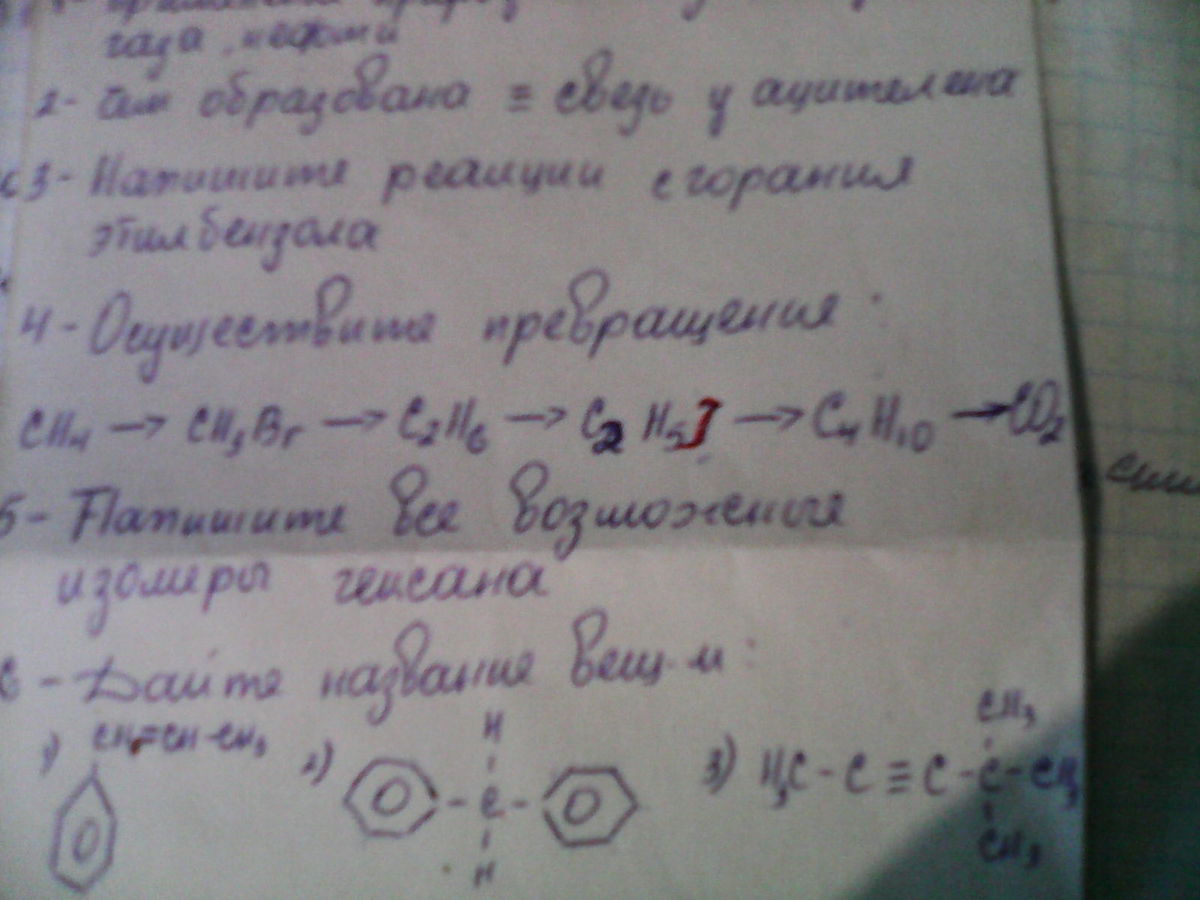 газа, нефти
2- Чем образована ≡ свезь у ацителена
3- Напишите реакции сгорания
этилбензола
4- Осуществите превращения:
CH4 → CH3Br → C2H6 → C2H5I → C4H10 → CO2
5- Напишите все возможеные
изомеры гексана
6- Дайте название вещ-м:
1) CH=CH-CH3
2) H
C
H
3) H3C-C≡C-C-CH3
CH3
CH3